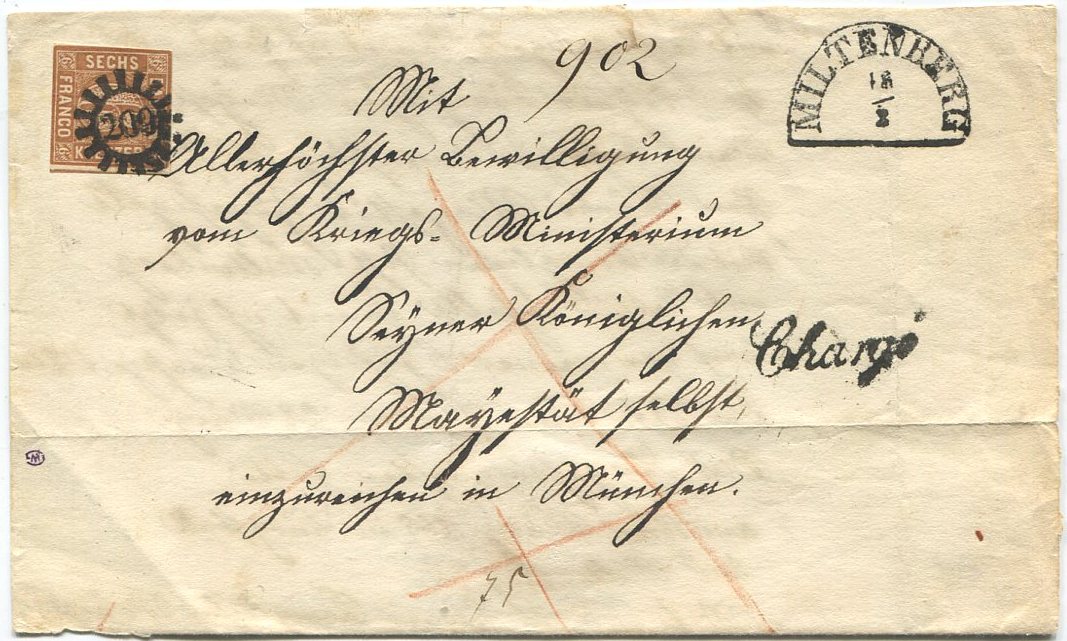 902
SECHS
FRANCO
6
209
MILTENBERG
18
8
Mit
Allerhöchster Bewilligung
vom Kriegs- Ministerium
Seyner Königlichen
Chargé
Mayestät selbst,
einzureichen in München.
75